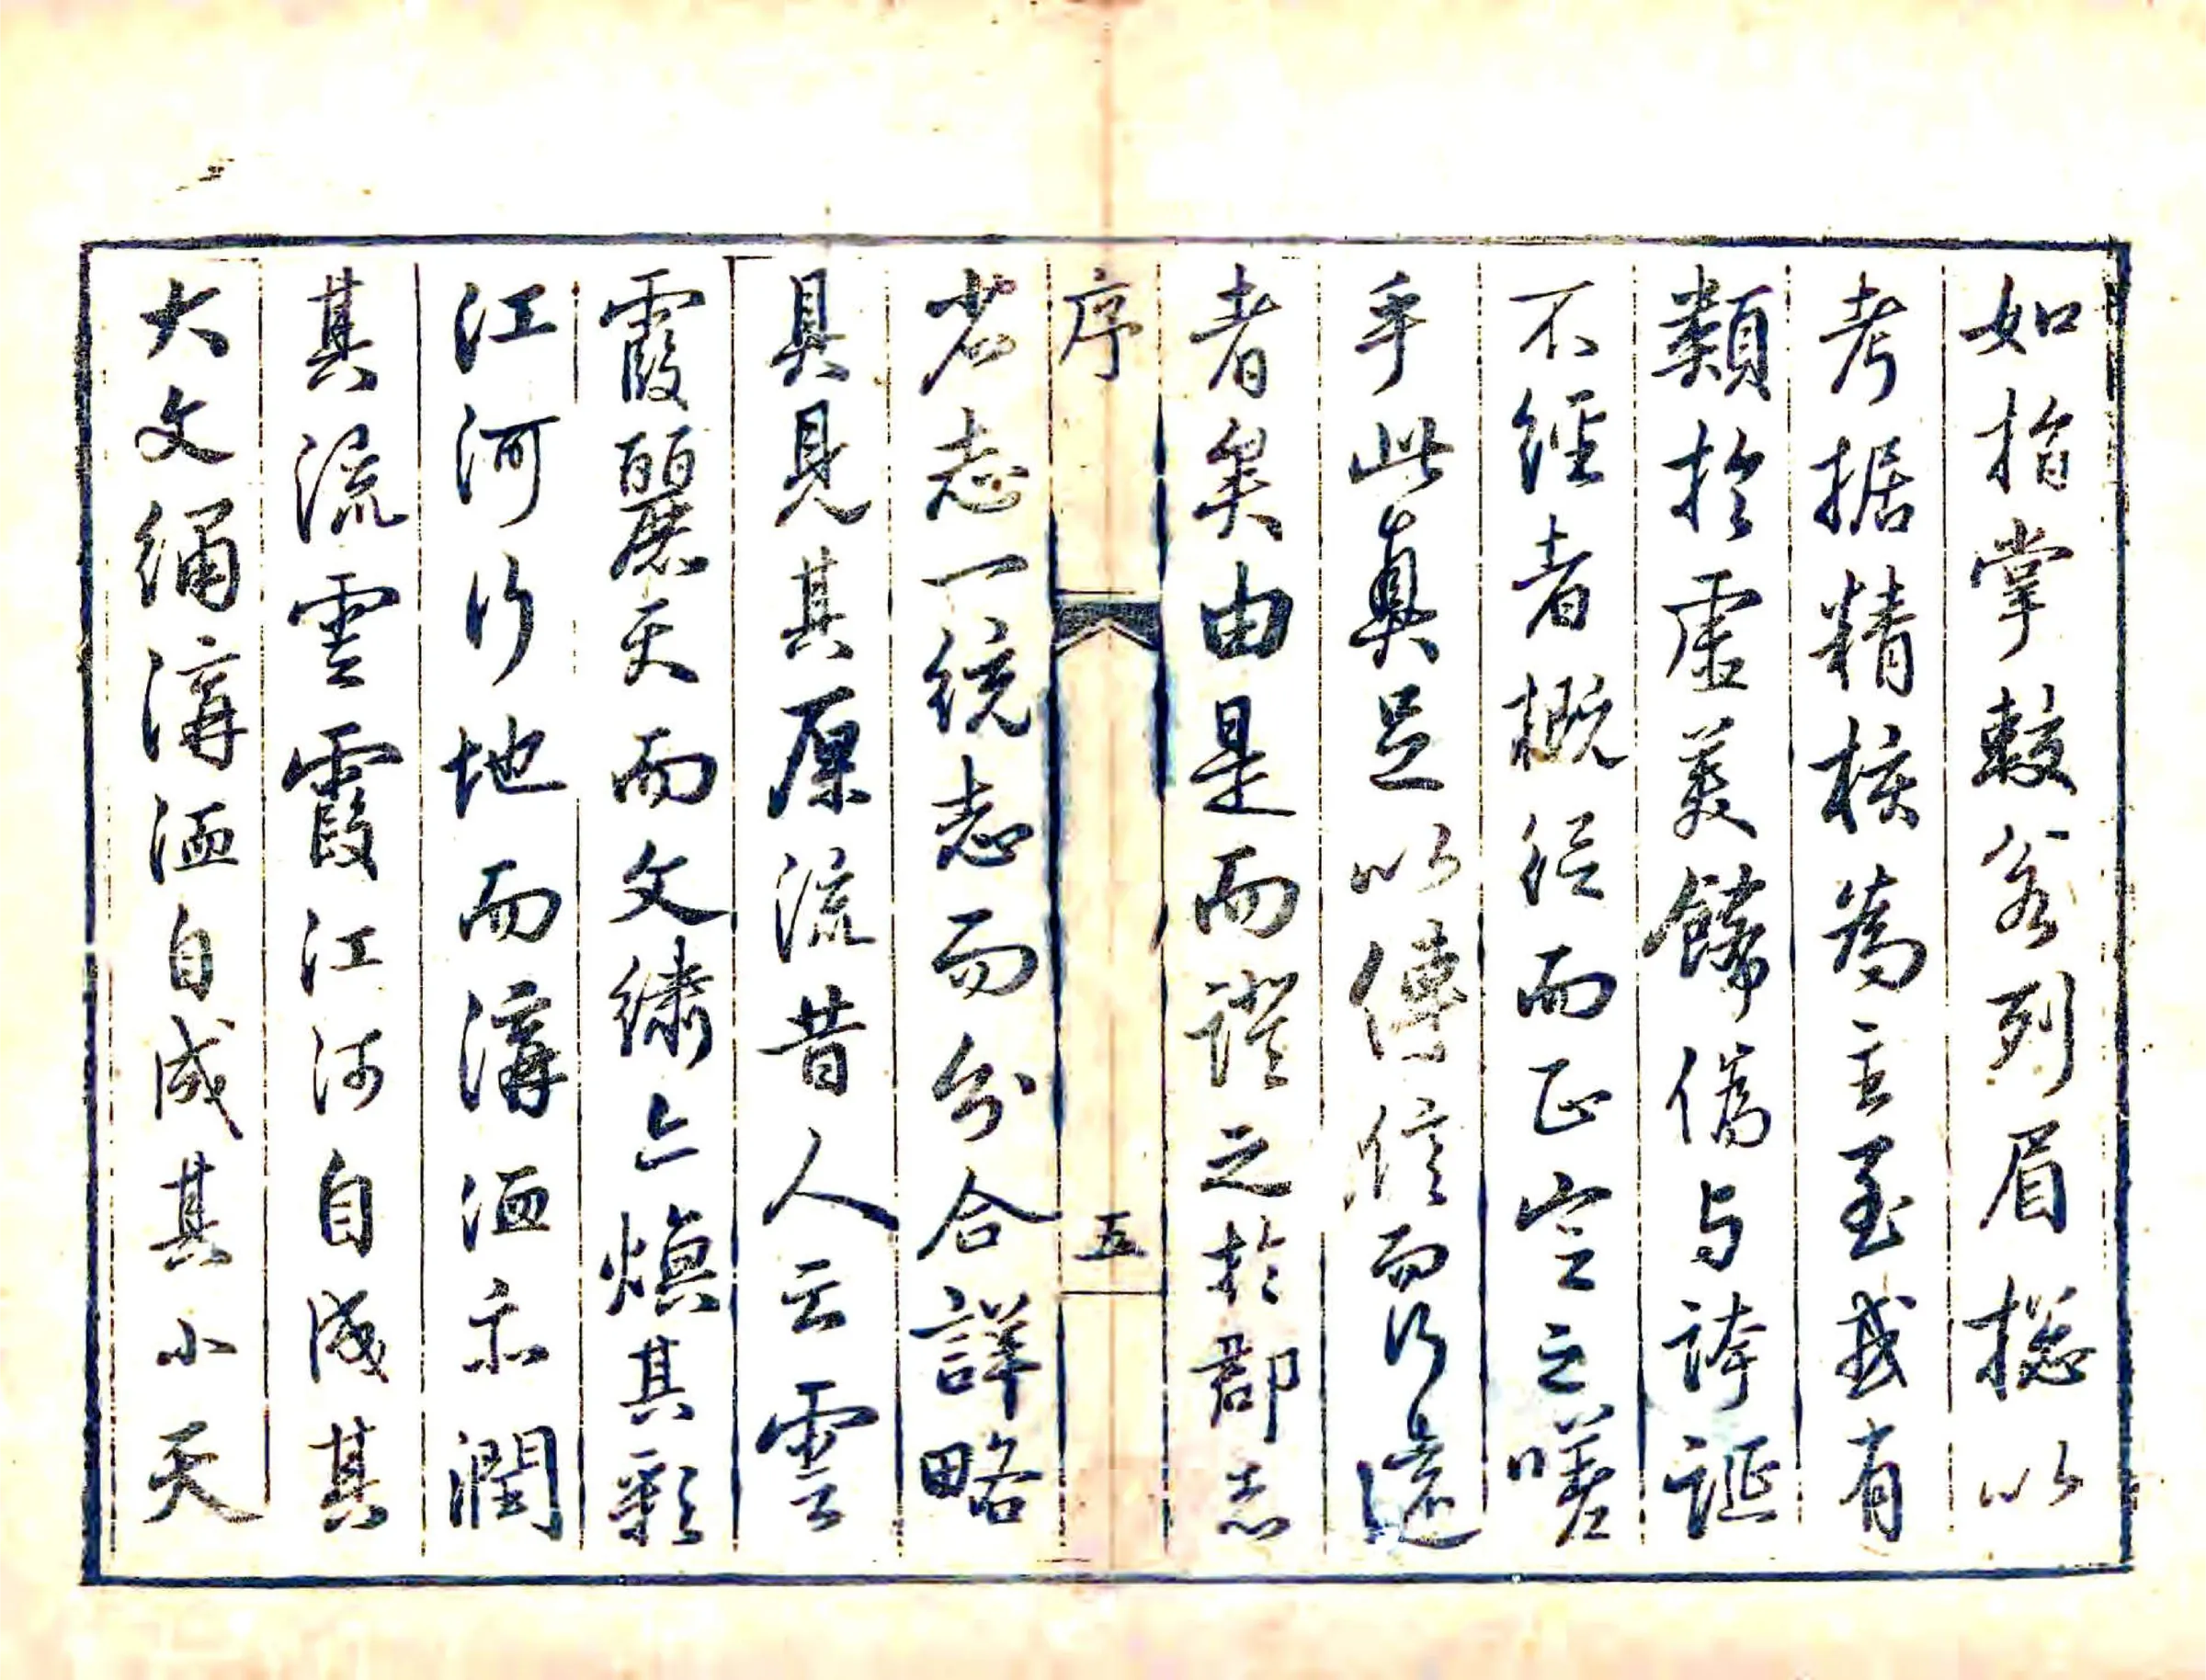 如指掌較若列眉揔以
考据精核為主至或有
類於虛美餙偽与誇誕
不經者概從而正定之嗟
乎此真足以傳信而行遠
者矣由是而證之於郡志
序
五
省志一統志而分合詳略
具見其原流昔人云雲
霞麗天而文綉亦煥其彩
江河行地而溝洫亦潤
其流雲霞江河自成其
大文綉溝洫自成其小天